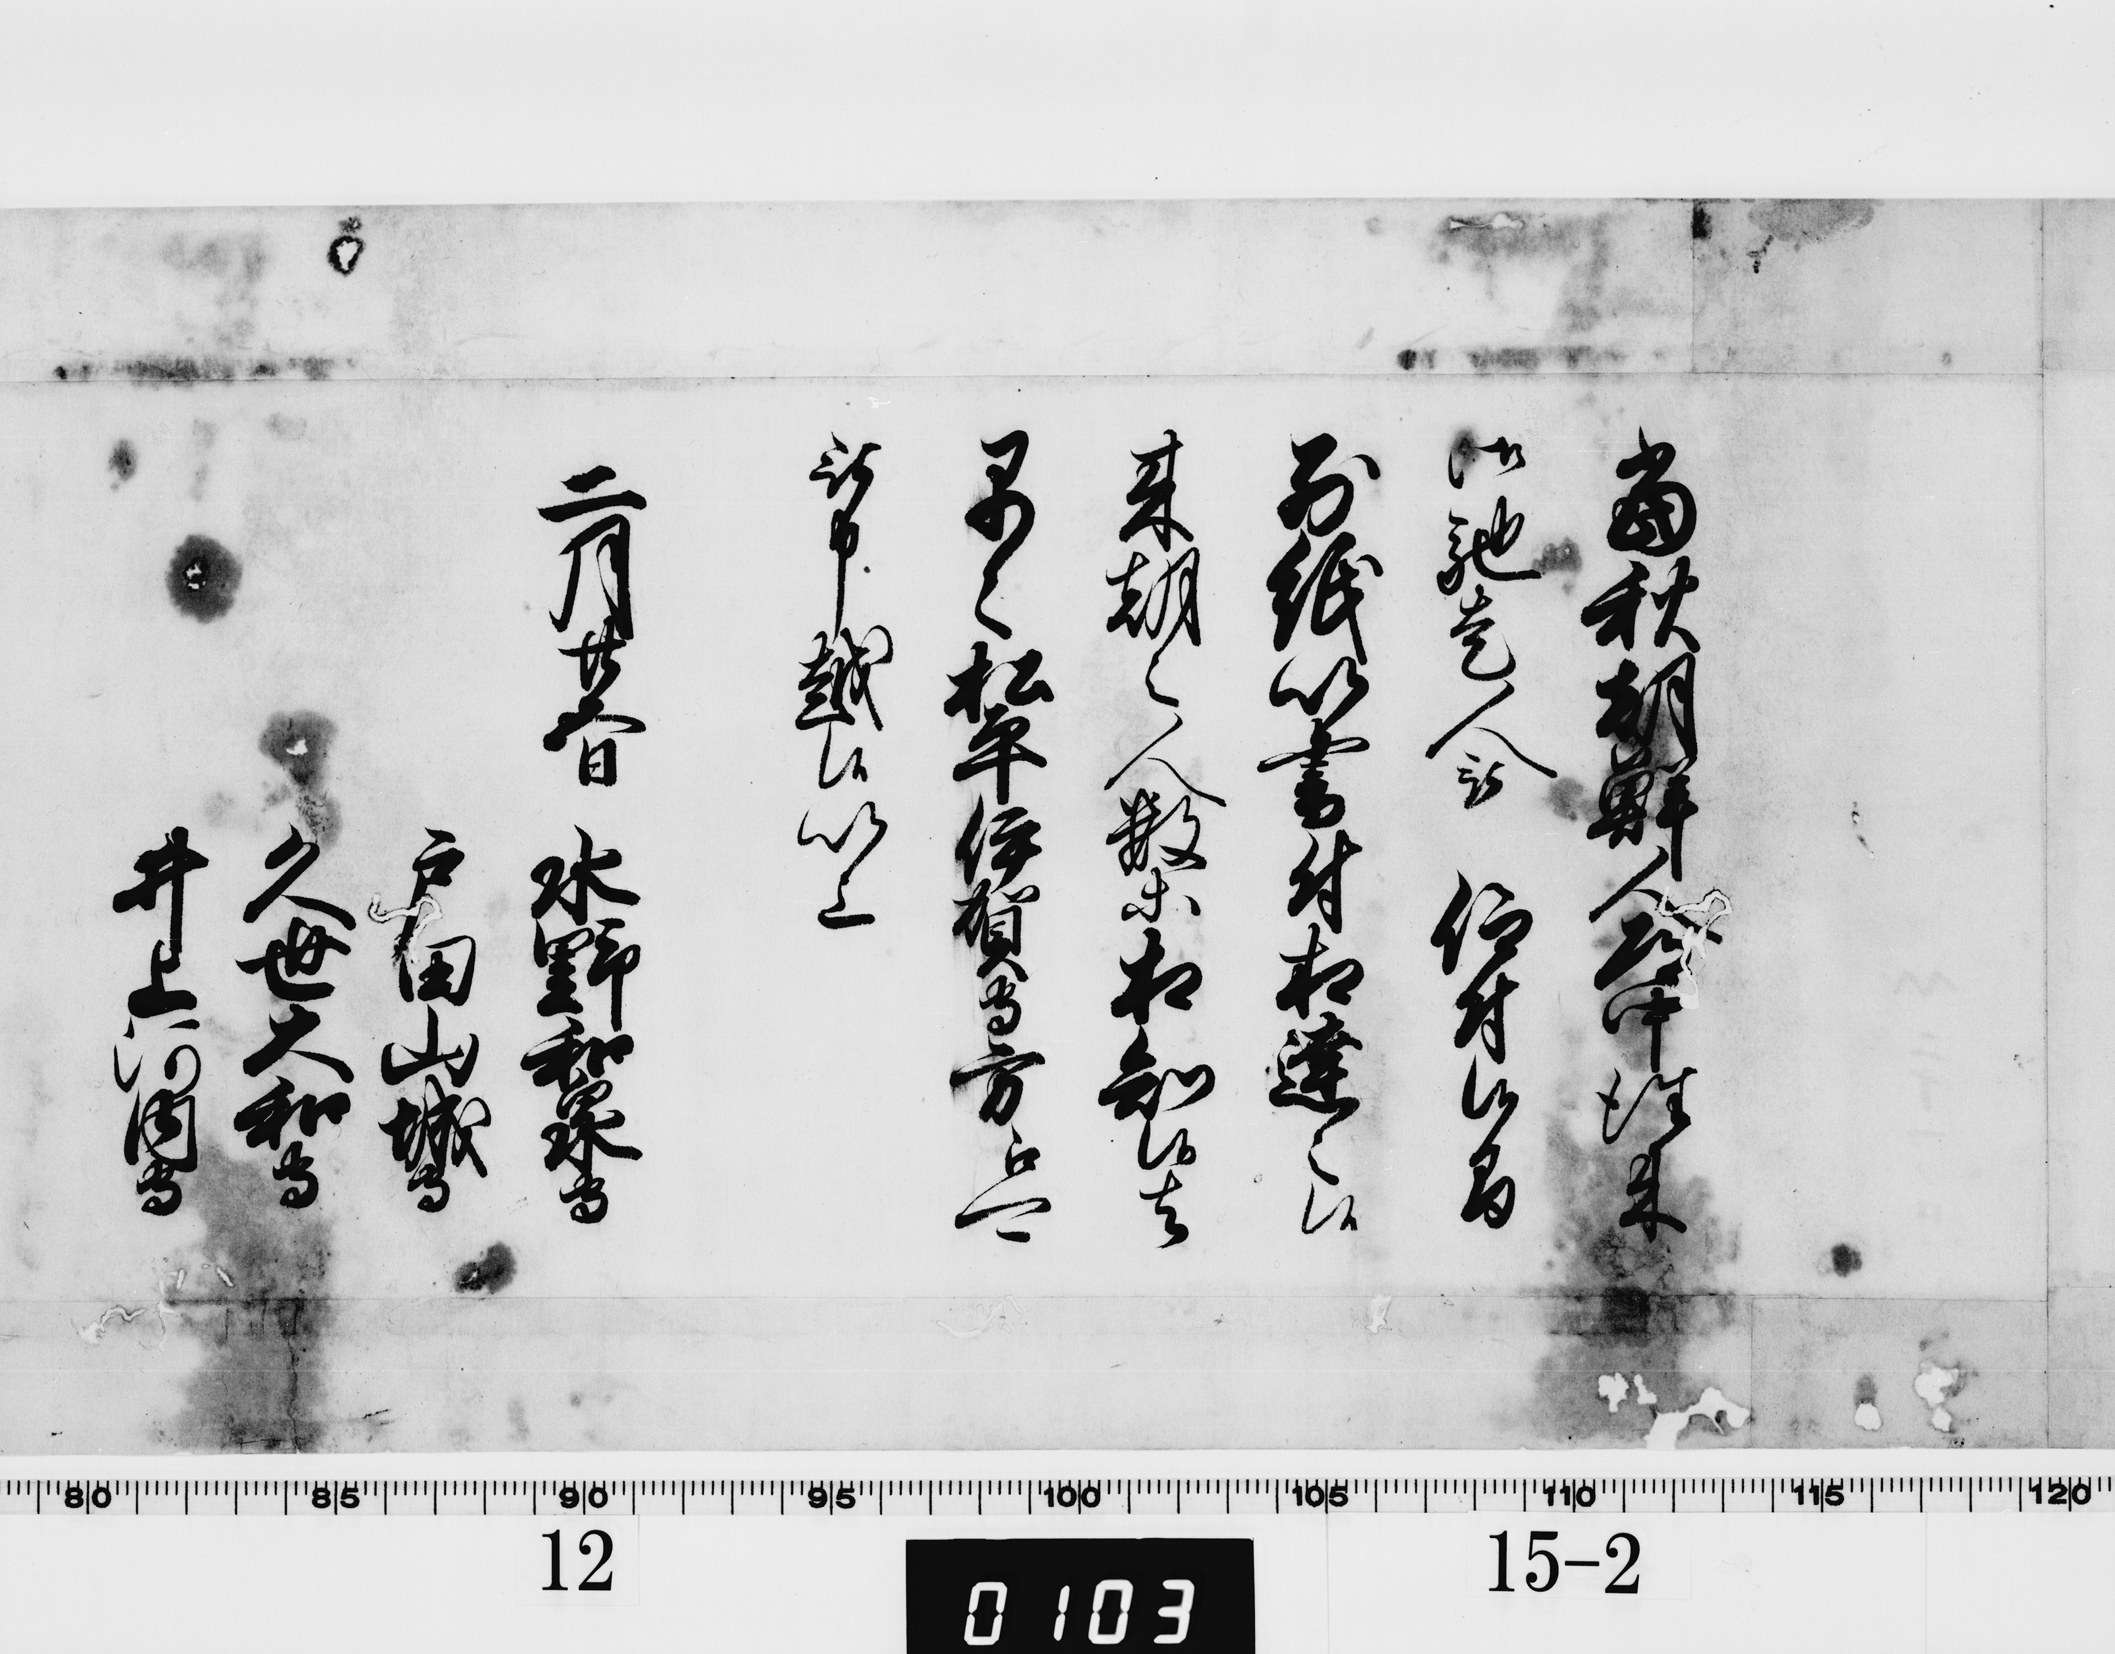 當秋朝鮮人道中往来
御馳走人被　仰付候間
別紙以書付相達之候
来朝之人数等相知候者
早々松平伊賀守方ゟ
被申越候以上
二月廿六日　水野和泉守
戸田山城守
久世大和守
井上河内守
80 85 90 95 100 105 110 115 120
12 0103 15-2